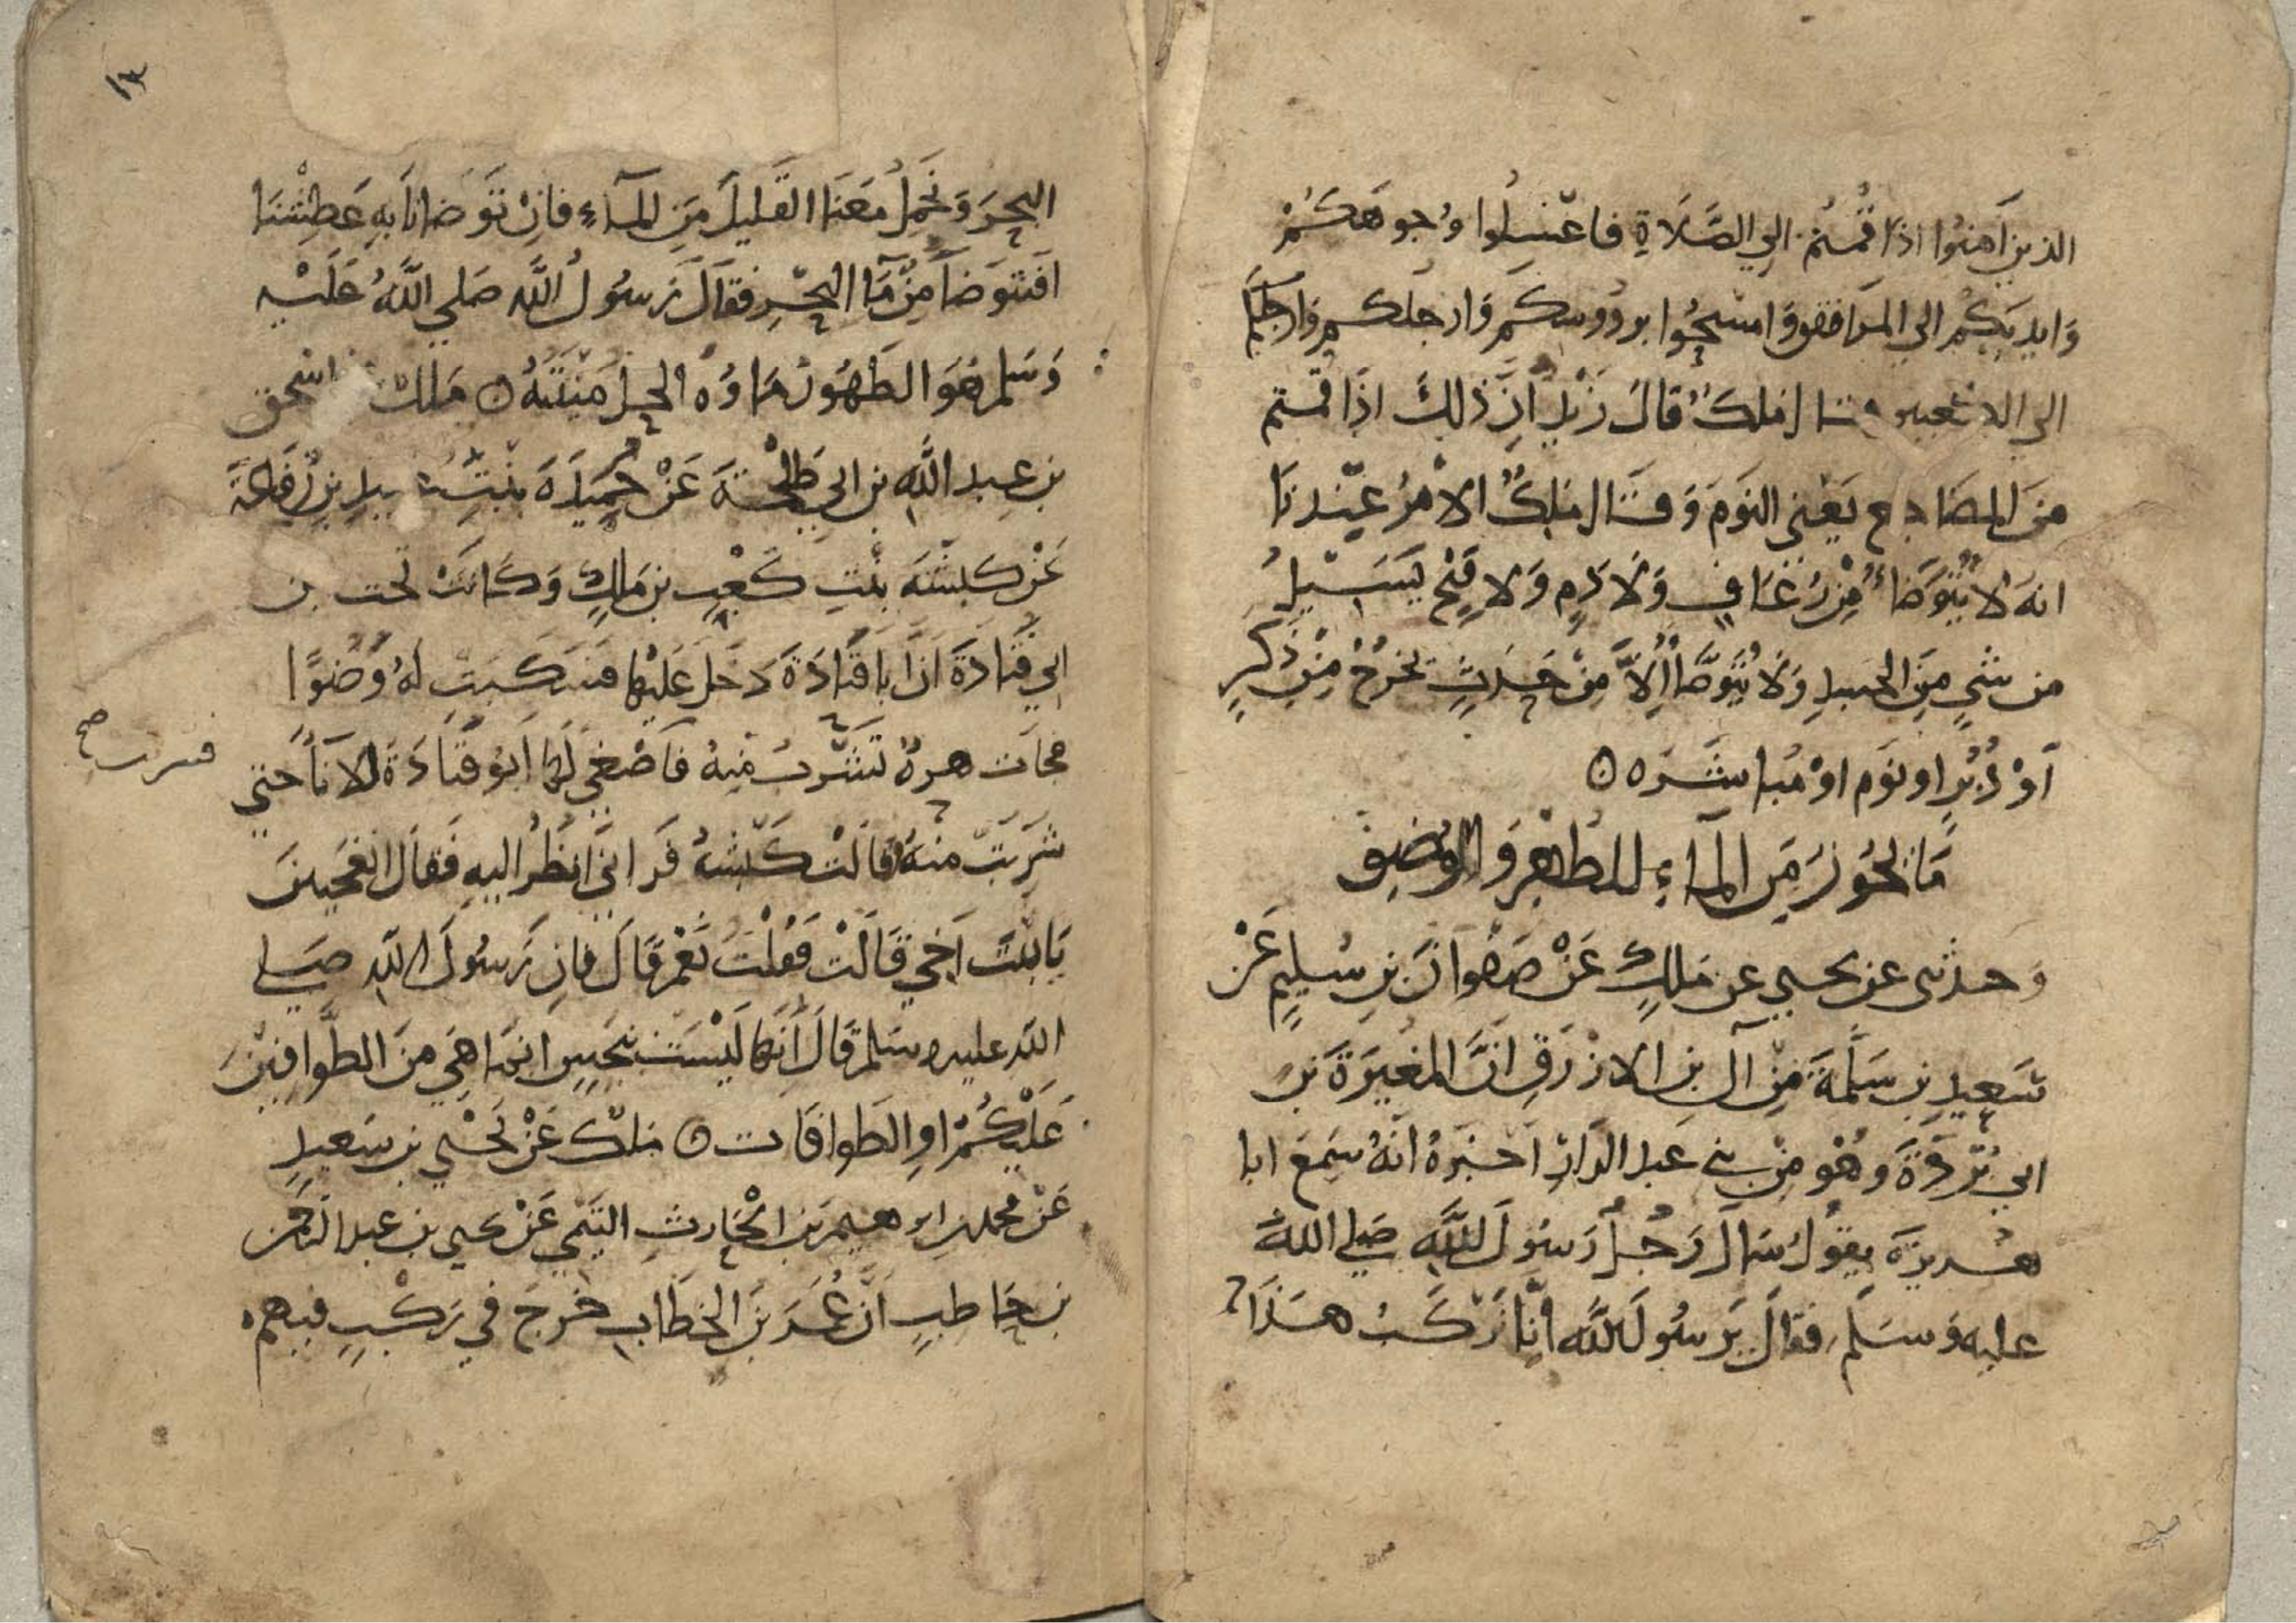 الذين آمنوا اذا قُمتُم الي الصَّلَاةِ فاغسِلُوا وُجوهَكُمْ
وَايديَكُم الي المرَافق وَامسَحُوا بروُوسكم وَارجلكم وَارجلكم
الي الكعبين قال مٰلك قالَ زَيْد انَّ ذلِكَ اذَا قمتم
منَ المضَاجع يَعْنِي النوَم وَقَال مٰلِكٌ الامْرُ عِنْدنَا
انه لا يُتوَضَاُ مِنْ رُعَافٍ وَلَا دَمٍ وَلا قَيْحٍ يَسِيْلُ
من شيٍ مِنَ الجسدِ وَلَا يُتَوَضَّأ اِلَّا مِنْ حَدَثٍ يخرُجُ مِنْ ذكَرٍ
اَوْ دُبُرٍ او نوَم اوْ مُباشَرَه ۝
مَا يجُوزُ مِن المآءِ للطهْرِ وَالوُضوِ
وَحدثنى عن يحيي عن مٰلكٍ عَنْ صَفْوانَ بنِ سُليمٍ عَنْ
سَعِيدِ بن سَلَمَةَ مِنْ آلِ بنِ الازْرَقِ انَّ المغيرَةَ بنَ
ابي بُرْدَةَ وَهُو مِنْ بني عَبد الدَّارِ اَخبَرَهُ انَّهُ سَمِعَ ابا
هُريرَةَ يقوُلُ سَال رَجُلٌ رَسُولَ اللَّه صَلي اللهُ
عليه وَسَلَم فقالَ يَرسُولَ اللَّه انَّا نَرْكَبُ هَذَا
١٣
البحرَ وَنحمِلُ مَعَنَا القَليلَ مِن المآءِ فانْ تَوَضانَا بهِ عَطِشْنَا
افنتوَضاُ مِنْ مَآ البحْرِ فقالَ رَسُولُ اللَّه صَلي اللَّهُ عَلَيْه
وَسَلم هُوَ الطَهُورُ مَاوُهُ الحِلُ مَيْتَتُهُ ۝ مٰلك عن اسحٰق
بن عبد اللَّه بن ابي طَلحَةَ عَنْ حُمَيدَةَ بنْتِ عُبيدِ بنِ رِفَاعَةَ
عَنْ كبشَةَ بنْتِ كَعْبِ بن مٰالكٍ وَكانَتْ تحت بن
ابي قَتادَةَ انَّ ابا قَتادَةَ دَخل عَليْها فسَكَبَتْ لهُ وَضُوًا
فجَات هرةٌ تَشْرَبُ مِنهُ فَاَصْغي لها اَبُو قتَادَةَ الانَاَ حَتي
فشربت صح
شرِبَتْ منهُ قالَتْ كَبْشَهُ فَراني انظُرُ اليهِ فَقالَ اتعجَبينَ
يَا بْنَتَ اَخي قَالَتْ فَقُلْتُ نَعَمْ قَالَ فانِ رَسُولَ اللَّه صَلي
اللَّه عليه وسَلم قَالَ اَنَّها ليْسَت بنَجَسٍ انمَا هي منَ الطَّوافينَ
عَلَيْكُمْ اوِ الطَوافَات ۝ مٰلكْ عَنْ يَحْيي بن سَعيدٍ
عَنْ محمد بن ابرهيم بن الْحَارثِ التيمي عَنْ يحيي بن عبد الرحمن
بن حَاطبٍ انَّ عُمَرَ بْنَ الخطَّاب خَرجَ في رَكْبٍ فيهم